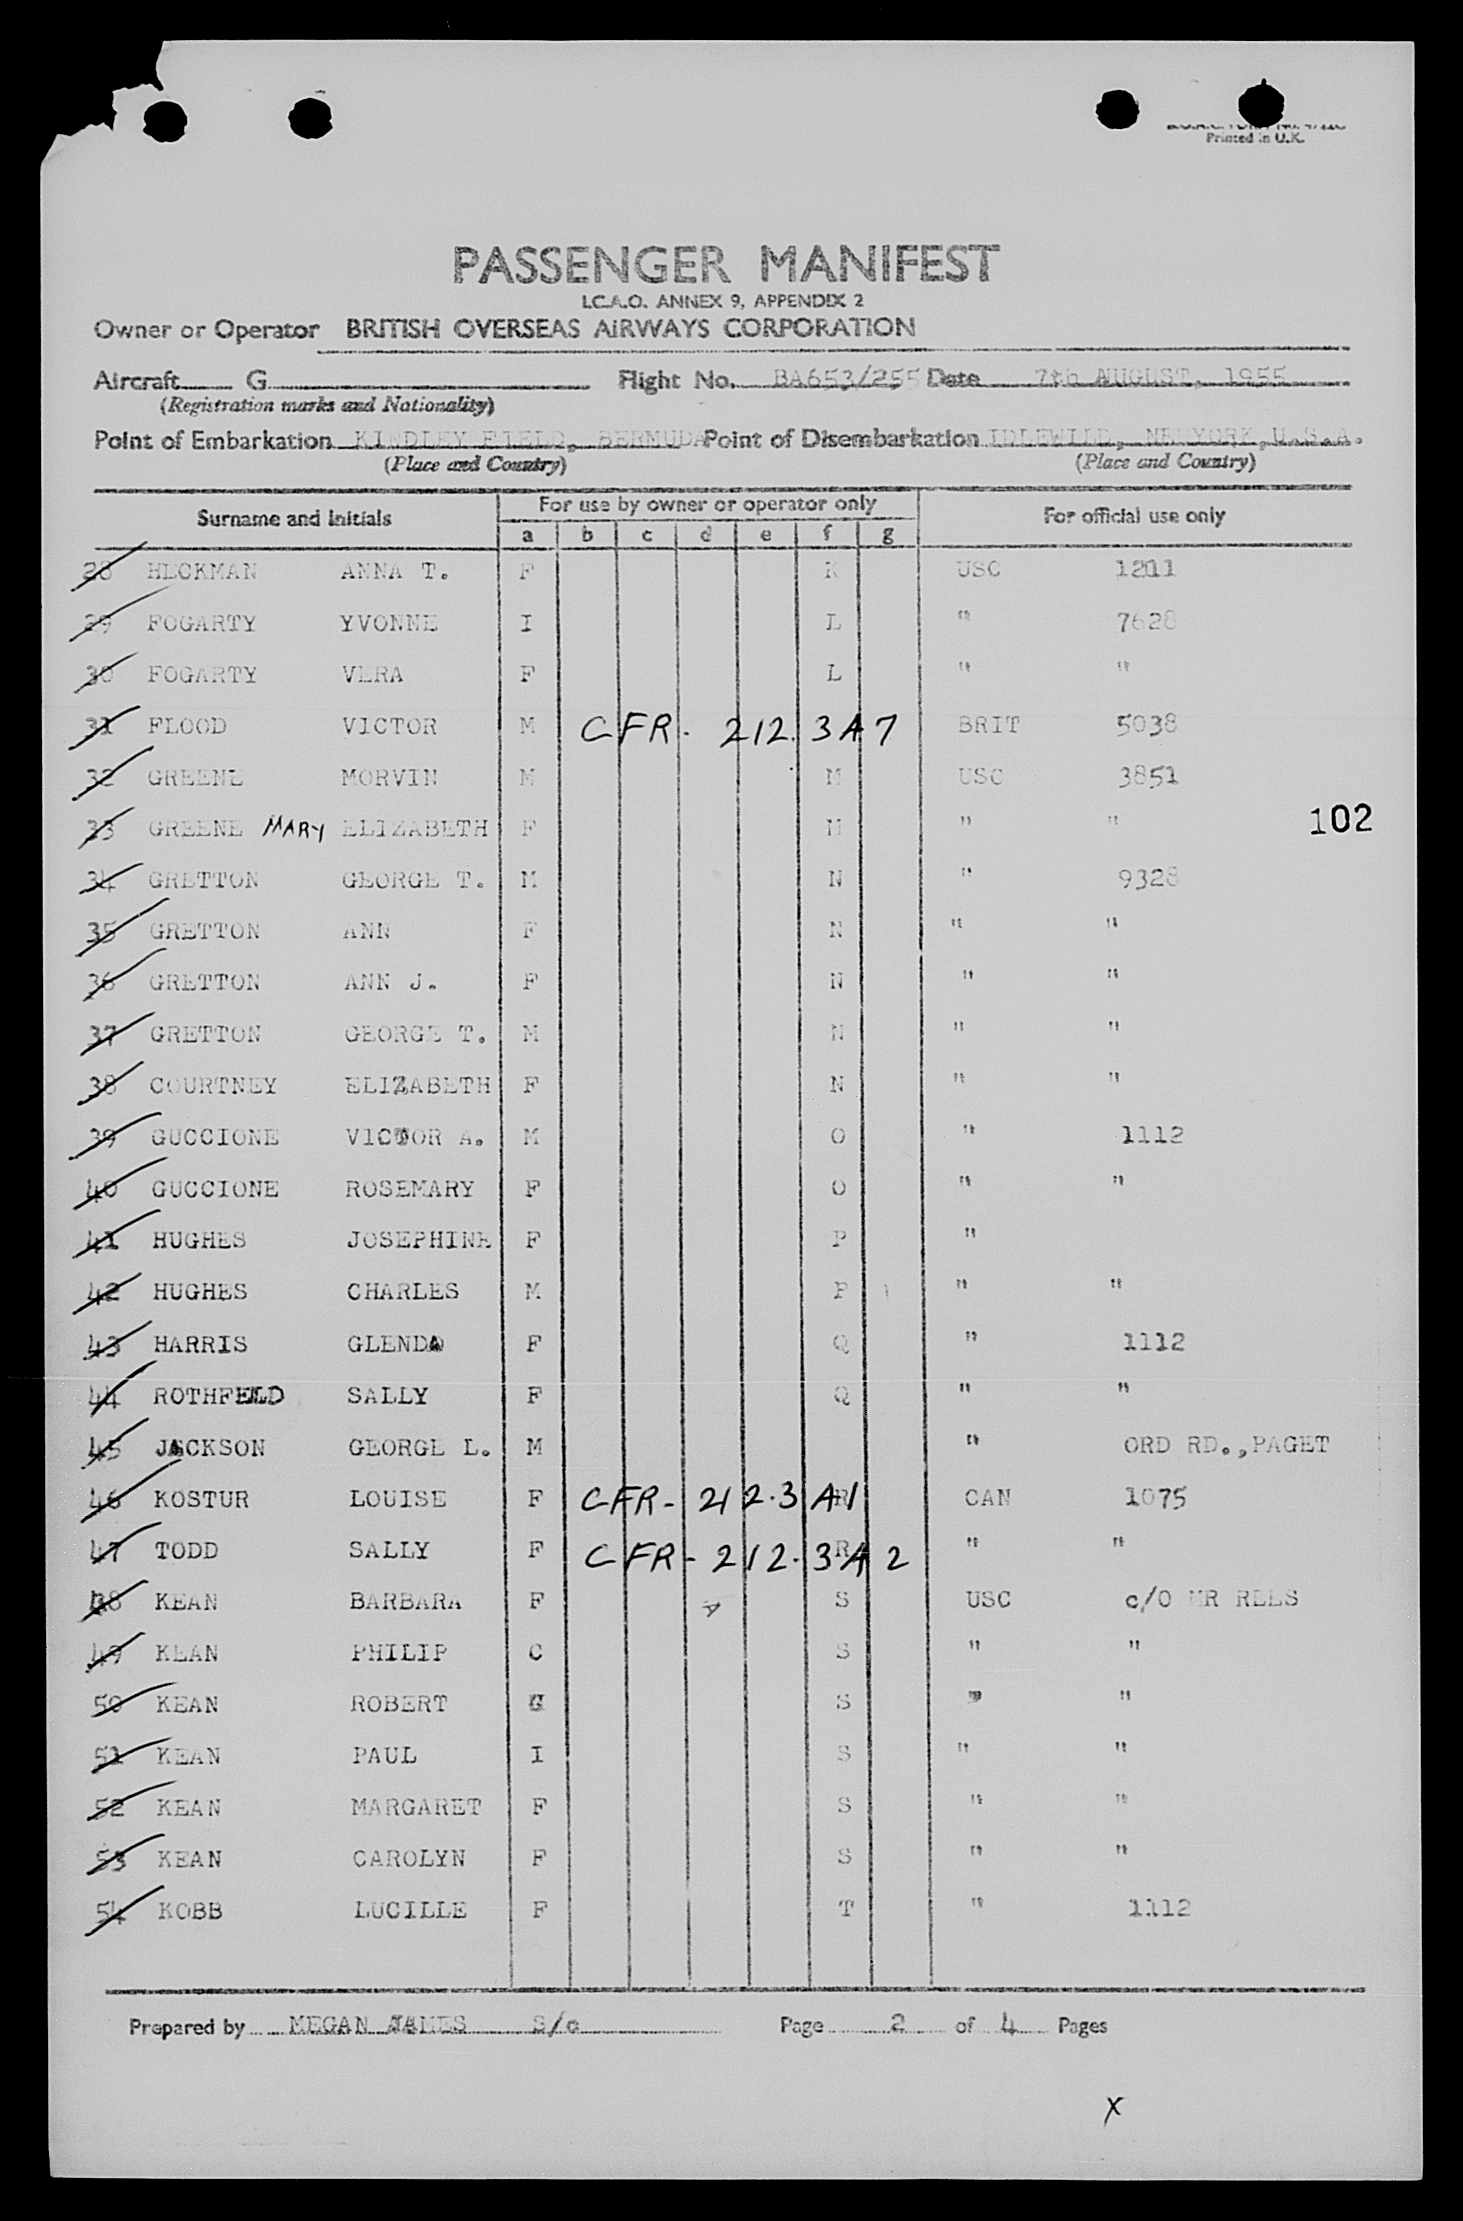 Printed in U.K.
PASSENGER MANIFEST
I.C.A.O. ANNEX 9, APPENDIX 2
Owner or Operator BRITISH OVERSEAS AIRWAYS CORPORATION
Aircraft G Flight No. BA653/255 Date 7th AUGUST, 1955
(Registration marks and Nationality)
Point of Embarkation KINDLEY FIELD, BERMUDA Point of Disembarkation IDLEWILD, NEWYORK, U.S.A.
(Place and Country) (Place and Country)
Surname and Initials For use by owner or operator only For official use only
a b c d e f g
28 HECKMAN ANNA T. F K USC 1211
29 FOGARTY YVONNE I L " 7628
30 FOGARTY VERA F L " "
31 FLOOD VICTOR M CFR - 212.3A7 BRIT 5038
32 GREENE MORVIN M M USC 3851
33 GREENE MARY ELIZABETH F M " " 102
34 GRETTON GEORGE T. M N " 9328
35 GRETTON ANN F N " "
36 GRETTON ANN J. F N " "
37 GRETTON GEORGE T. M N " "
38 COURTNEY ELIZABETH F N " "
39 GUCCIONE VICTOR A. M O " 1112
40 GUCCIONE ROSEMARY F O " "
41 HUGHES JOSEPHINE F P "
42 HUGHES CHARLES M P " "
43 HARRIS GLENDA F Q " 1112
44 ROTHFELD SALLY F Q " "
45 JACKSON GEORGE L. M " ORD RD.,PAGET
46 KOSTUR LOUISE F CFR - 212.3A1 R CAN 1075
47 TODD SALLY F CFR - 212.3A2 R " "
48 KEAN BARBARA F S USC c/O MR REES
49 KEAN PHILIP C S " "
50 KEAN ROBERT C S " "
51 KEAN PAUL I S " "
52 KEAN MARGARET F S " "
53 KEAN CAROLYN F S " "
54 KOBB LUCILLE F T " 1112
Prepared by MEGAN JAMES S/c Page 2 of 4 Pages
X